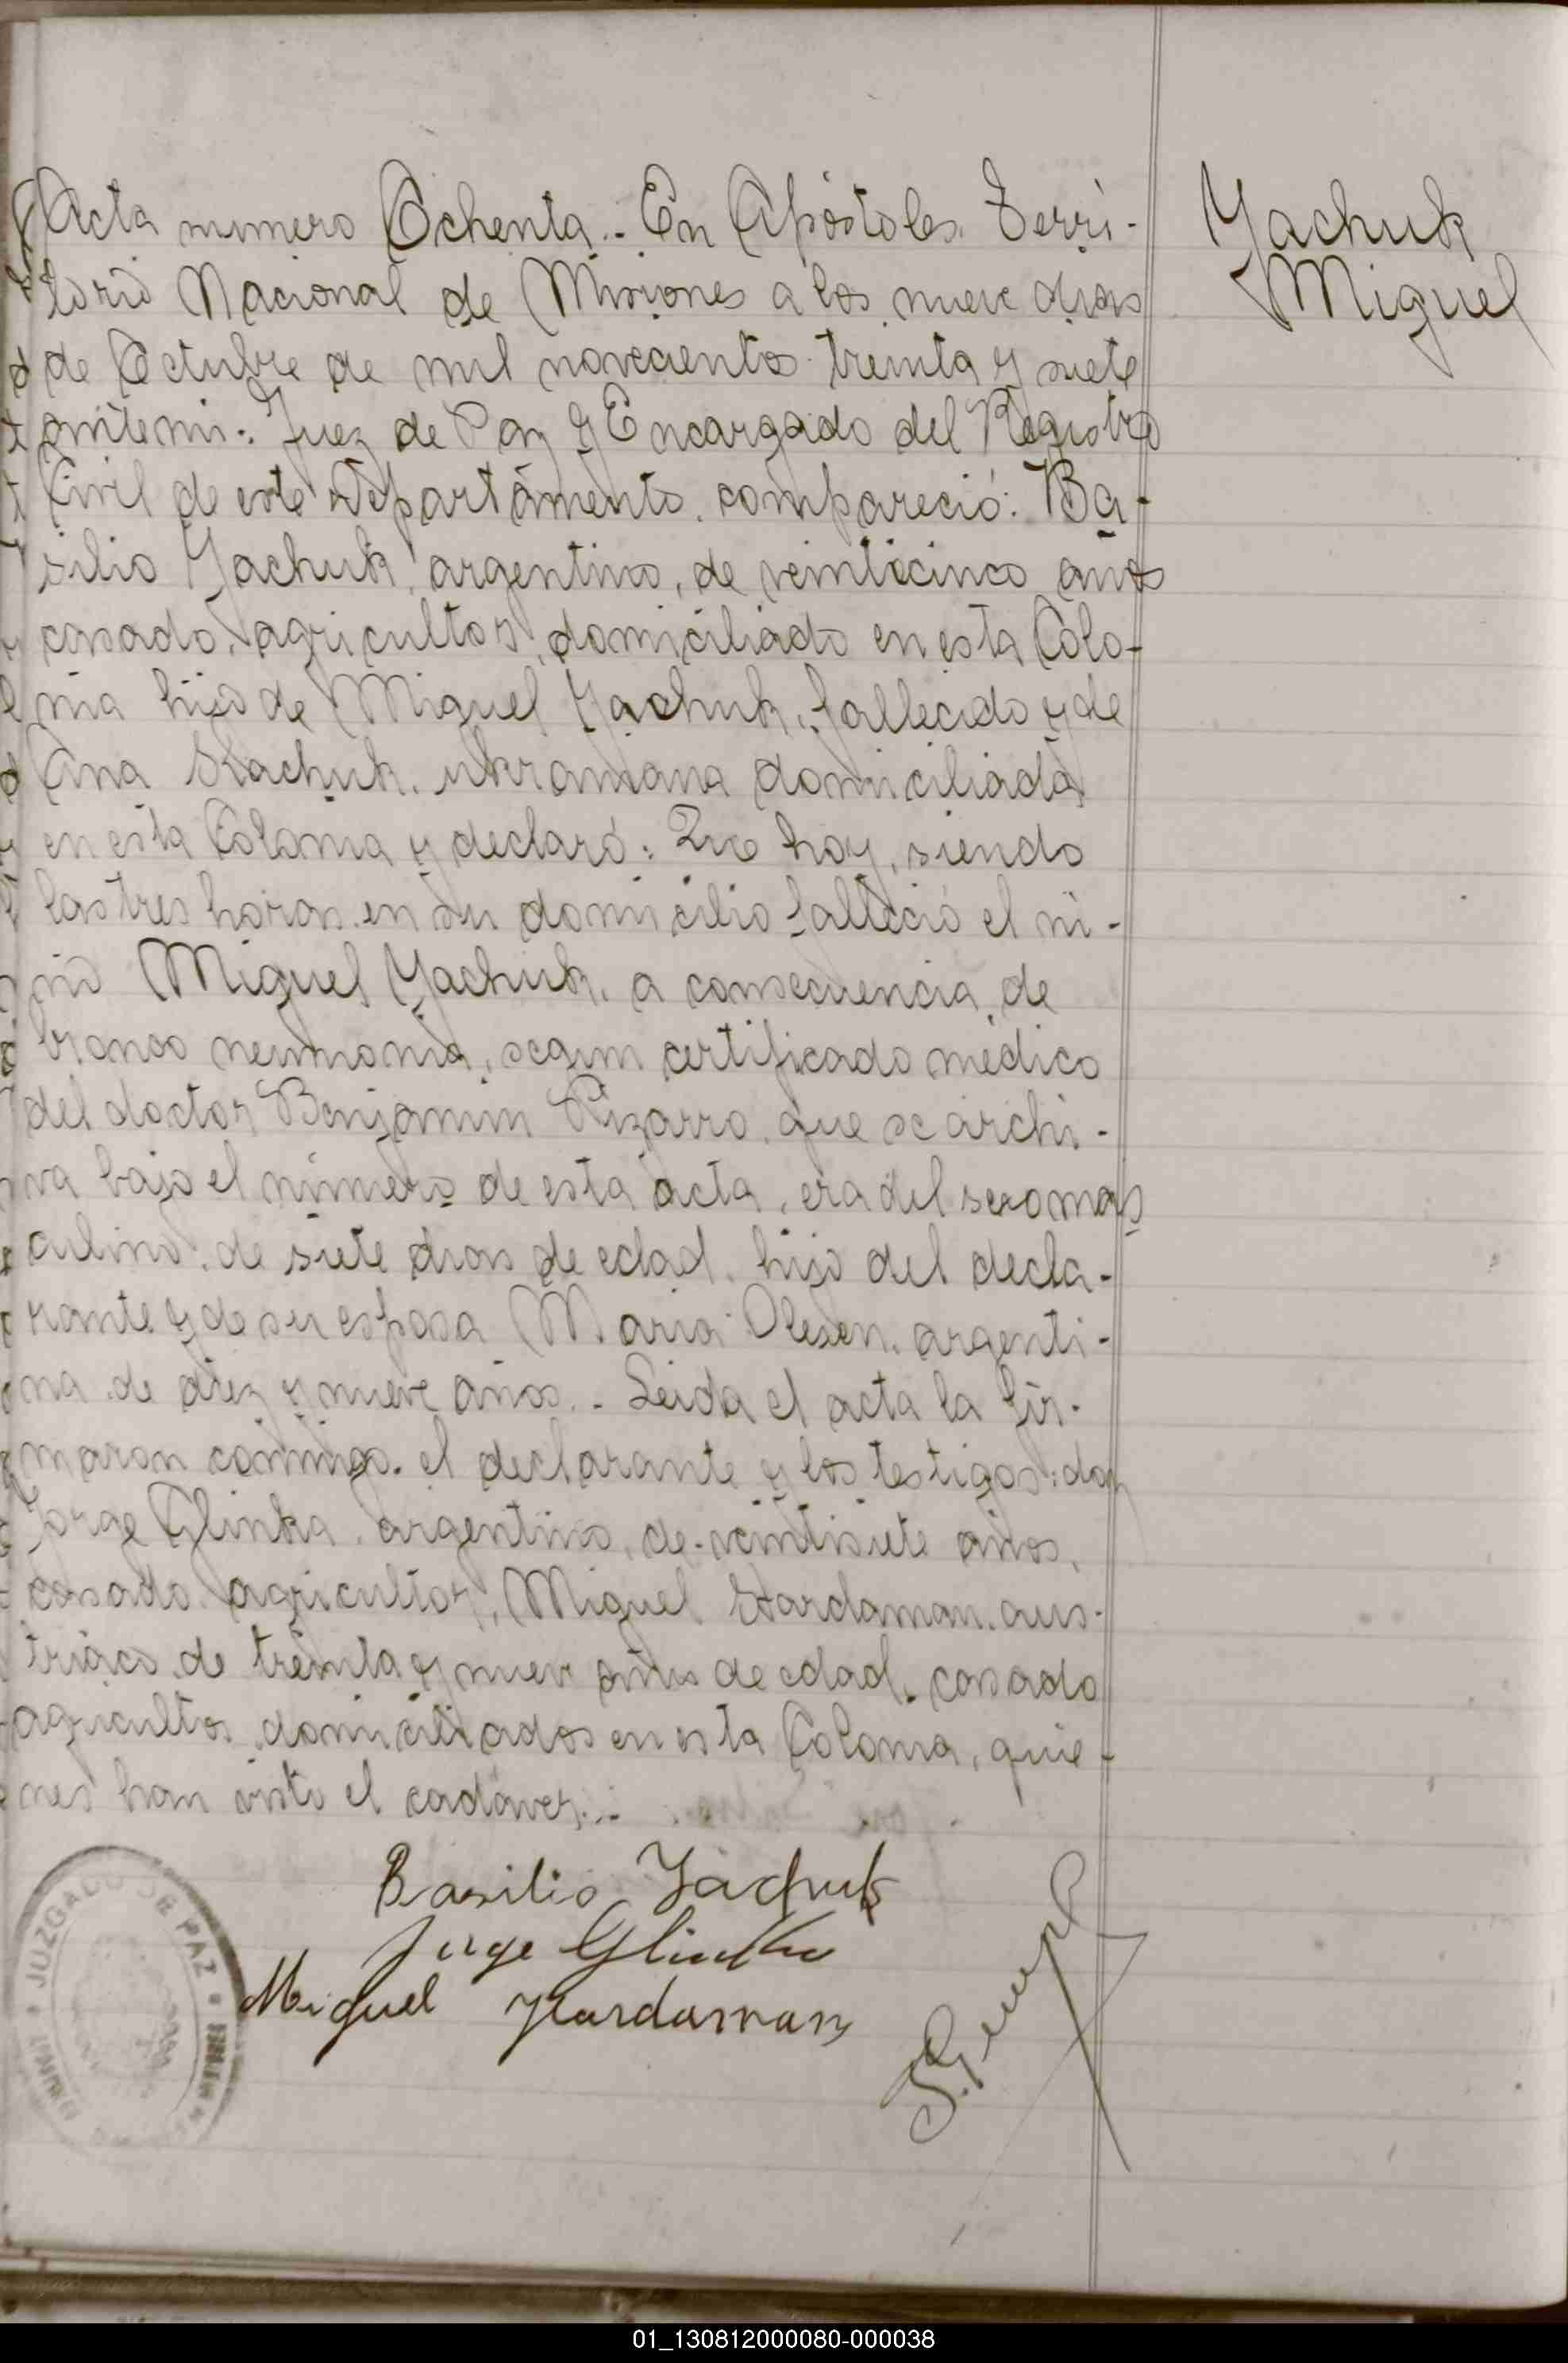 Acta numero Ochenta.- En Apóstoles. Terri-
torio Nacional de Misiones a los nueve dias
de Octubre de mil novecientos treinta y siete
ante mi: Juez de Paz y Encargado del Registro
Civil de este Departamento. compareció: Ba-
silio Yachuk, argentino, de veinticinco años
casado, agricultor, domiciliado en esta Colo-
nia hijo de Miguel Yachuk, fallecido y de
Ana Kachuk, ukraniana domiciliada
en esta Colonia y declaró: Que hoy, siendo
las tres horas en su domicilio falleció el ni-
ño Miguel Yachuk, a consecuencia de
bronco neumonia, segun certificado médico
del doctor Benjamin Pizarro, que se archi-
va bajo el número de esta acta, era del sexo mas
culino, de siete dias de edad. hijo del decla-
rante y de su esposa Maria Olexen, argenti-
na de diez y nueve años.- Leida el acta la fir-
maron conmigo. el declarante y los testigos: don
Jorge Glinka, argentino, de veintisiete años,
casado agricultor, Miguel Hardaman, aus-
triaco de treinta y nueve años de edad, casado
agricultor domiciliados en esta Colonia, quie-
nes han visto el cadáver.-
Yachuk
Miguel
Basilio Yachuk
Jorge Glinka
Miguel Hardaman
JUZGADO DE PAZ
01_130812000080-000038